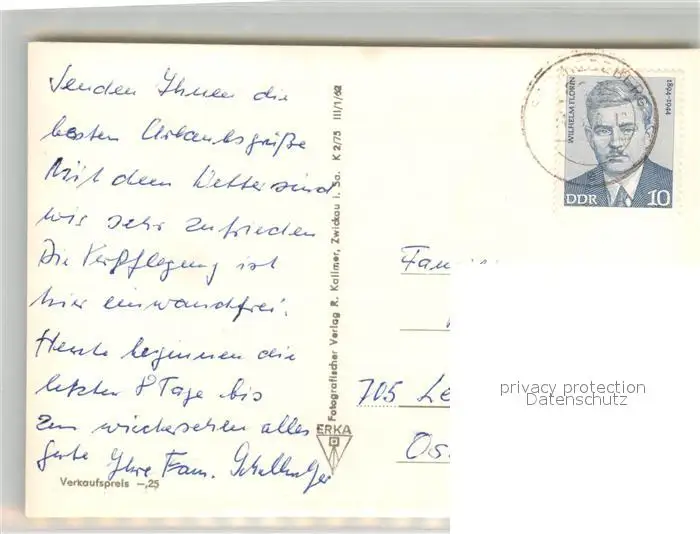 Senden Ihnen die
besten Urlaubsgrüße
Mit dem Wetter sind
wir sehr zufrieden
Die Verpflegung ist
hier einwandfrei.
Heute beginnen die
letzten 8 Tage bis
zum wiedersehen alles
gute Ihre Fam.
Verkaufspreis -,25
Fotografischer Verlag R. Kallmer, Zwickau i. Sa. K 2/75 III/1/62
ERKA
WILHELM FLORIN
1894-1944
DDR 10
Fam
705 Le
Os
privacy protection
Datenschutz